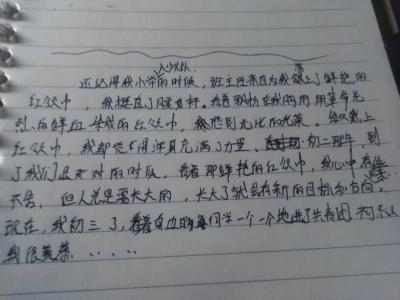 入少先队
还记得我小学的时候，班主任亲自为我戴上了鲜艳的
红领巾，我挺直了腰杆。看着飘扬在我胸前用革命先
烈的鲜血染成的红领巾，我感到无比的光荣。每次戴上
红领巾，我都觉得浑身充满了力量。初二那年，到
了我们退队的时候，看着那鲜艳的红领巾，我心中有些
不舍，但人总是要长大的，长大了就会有新的目标和方向。
现在，我初三了，看着身边的同学一个一个地进了共青团，不可否认
我很羡慕.....